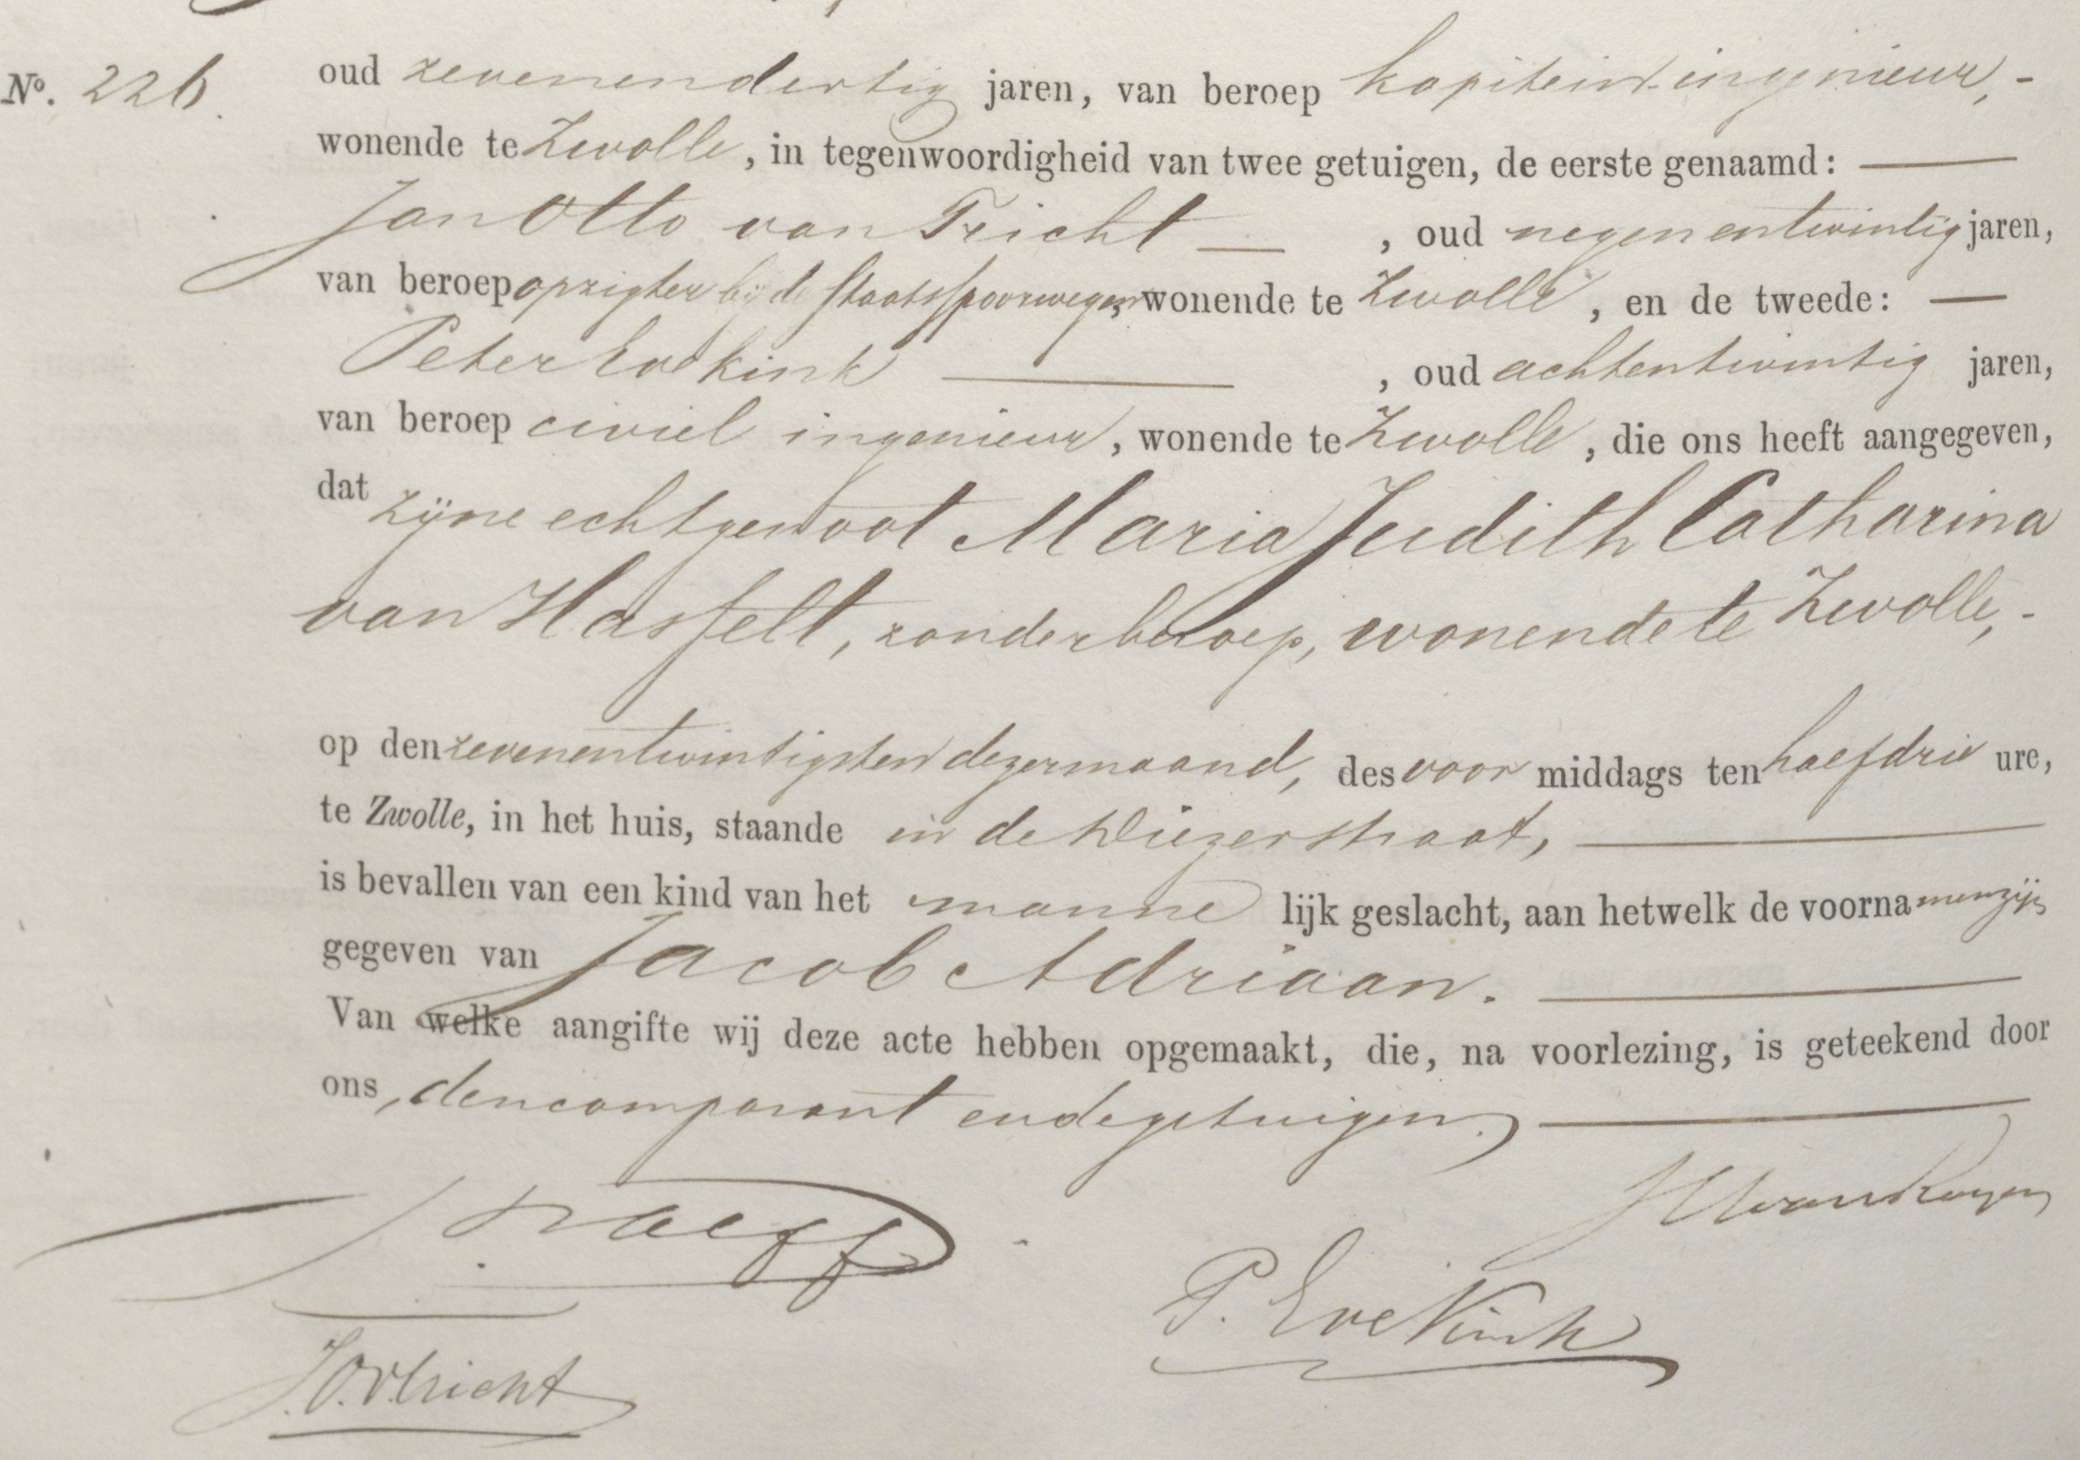 No. 226.
oud zevenendertig jaren, van beroep kapitein-ingenieur,-
wonende te Zwolle, in tegenwoordigheid van twee getuigen, de eerste genaamd: —
Jan Otto van Tricht —, oud negenentwintig jaren,
van beroep opzigter bij de Staatsspoorwegen, wonende te Zwolle, en de tweede: —
Peter Evekink —, oud achtentwintig jaren,
van beroep civiel ingenieur, wonende te Zwolle, die ons heeft aangegeven,
dat zijne echtgenoot Maria Judith Catharina
van Hasselt, zonder beroep, wonende te Zwolle,-
op den zevenentwintigsten dezer maand, des voor middags ten half drie ure,
te Zwolle, in het huis, staande in de Diezerstraat, —
is bevallen van een kind van het manne lijk geslacht, aan hetwelk de voorna men zijn
gegeven van Jacob Adriaan. —
Van welke aangifte wij deze acte hebben opgemaakt, die, na voorlezing, is geteekend door
ons, den comparant en de getuigen. —
van Royen
P. Evekink
J.O.v.Tricht